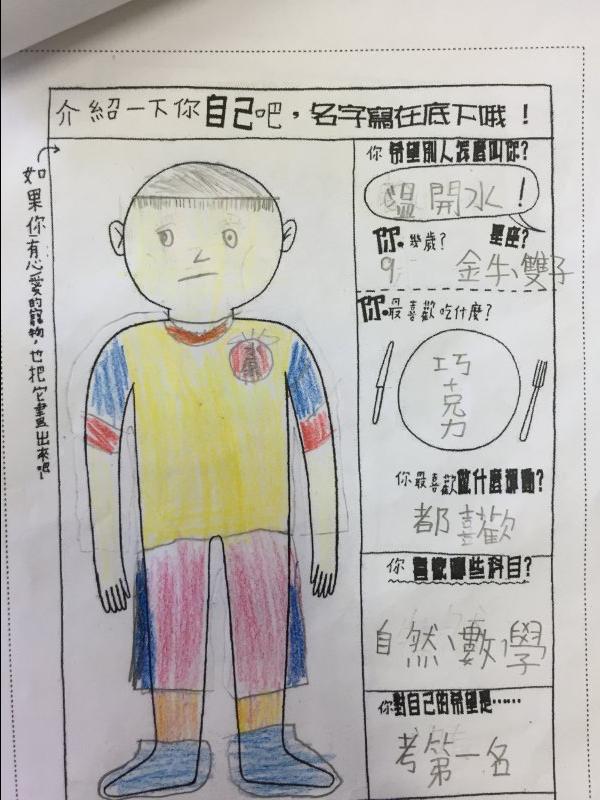 介紹一下你自己吧，名字寫在底下哦！
如果你有心愛的寵物，也把它畫出來吧！
你希望別人怎麼叫你？
溫開水！
你幾歲？
星座？
9
金牛、雙子
你最喜歡吃什麼？
巧克力
你最喜歡做什麼運動？
都喜歡
你喜歡哪些科目？
自然、數學
你對自己的希望是……
考第一名